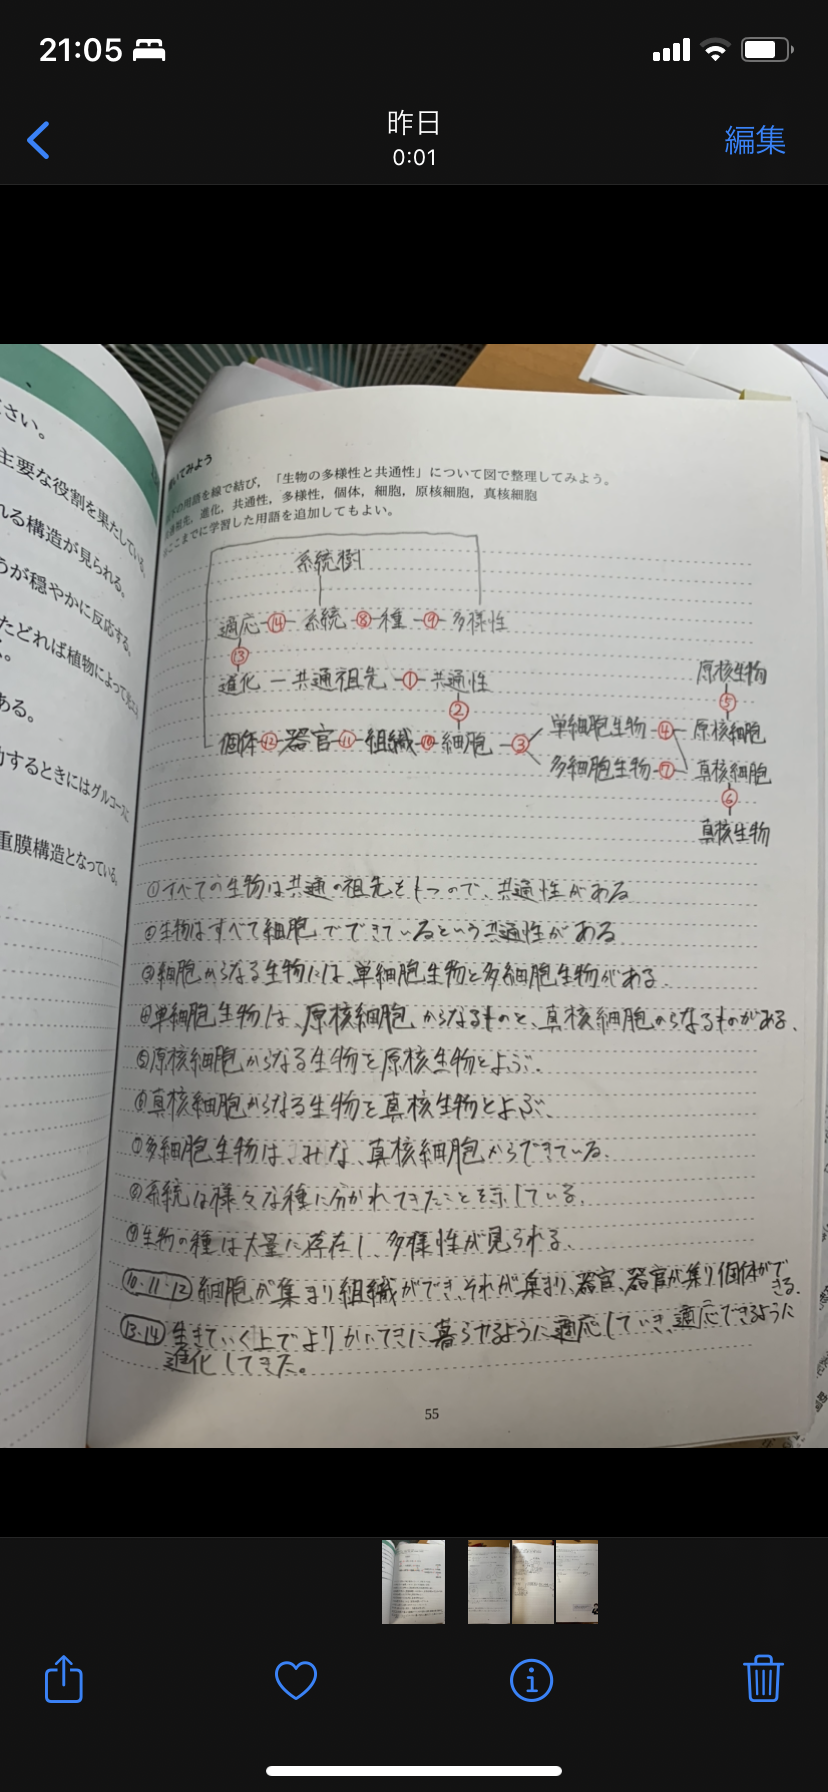 21:05
昨日
0:01
編集
ださい。
主要な役割を果たしている。
れる構造が見られる。
うが穏やかに反応する。
たどれば植物によって
ある。
力するときにはグルコースに
重膜構造となっている。
いてみよう
の用語を線で結び，「生物の多様性と共通性」について図で整理してみよう。
祖先，進化，共通性，多様性，個体，細胞，原核細胞，真核細胞
ここまでに学習した用語を追加してもよい。
系統樹
適応 ⑭ 系統 ⑧ 種 ⑨ 多様性
⑬
進化 ー 共通祖先 ① 共通性
原核生物
⑤
②
個体 ⑫ 器官 ⑪ 組織 ⑩ 細胞 ③
単細胞生物 ④ 原核細胞
多細胞生物 ⑦ 真核細胞
⑥
真核生物
①すべての生物は共通の祖先をもつので、共通性がある
②生物はすべて細胞でできているという共通性がある
③細胞からなる生物には、単細胞生物と多細胞生物がある.
④単細胞生物は、原核細胞からなるものと、真核細胞からなるものがある.
⑤原核細胞からなる生物を原核生物とよぶ.
⑥真核細胞からなる生物を真核生物とよぶ.
⑦多細胞生物は、みな、真核細胞からできている.
⑧系統は様々な種に分かれてきたことを示している.
⑨生物の種は大量に存在し、多様性が見られる.
⑩・⑪・⑫ 細胞が集まり組織ができ、それが集まり、器官、器官が集り個体ができる.
⑬・⑭ 生きていく上でよりかいてきに暮らせるように適応していき、適応できるように
進化してきた。
55